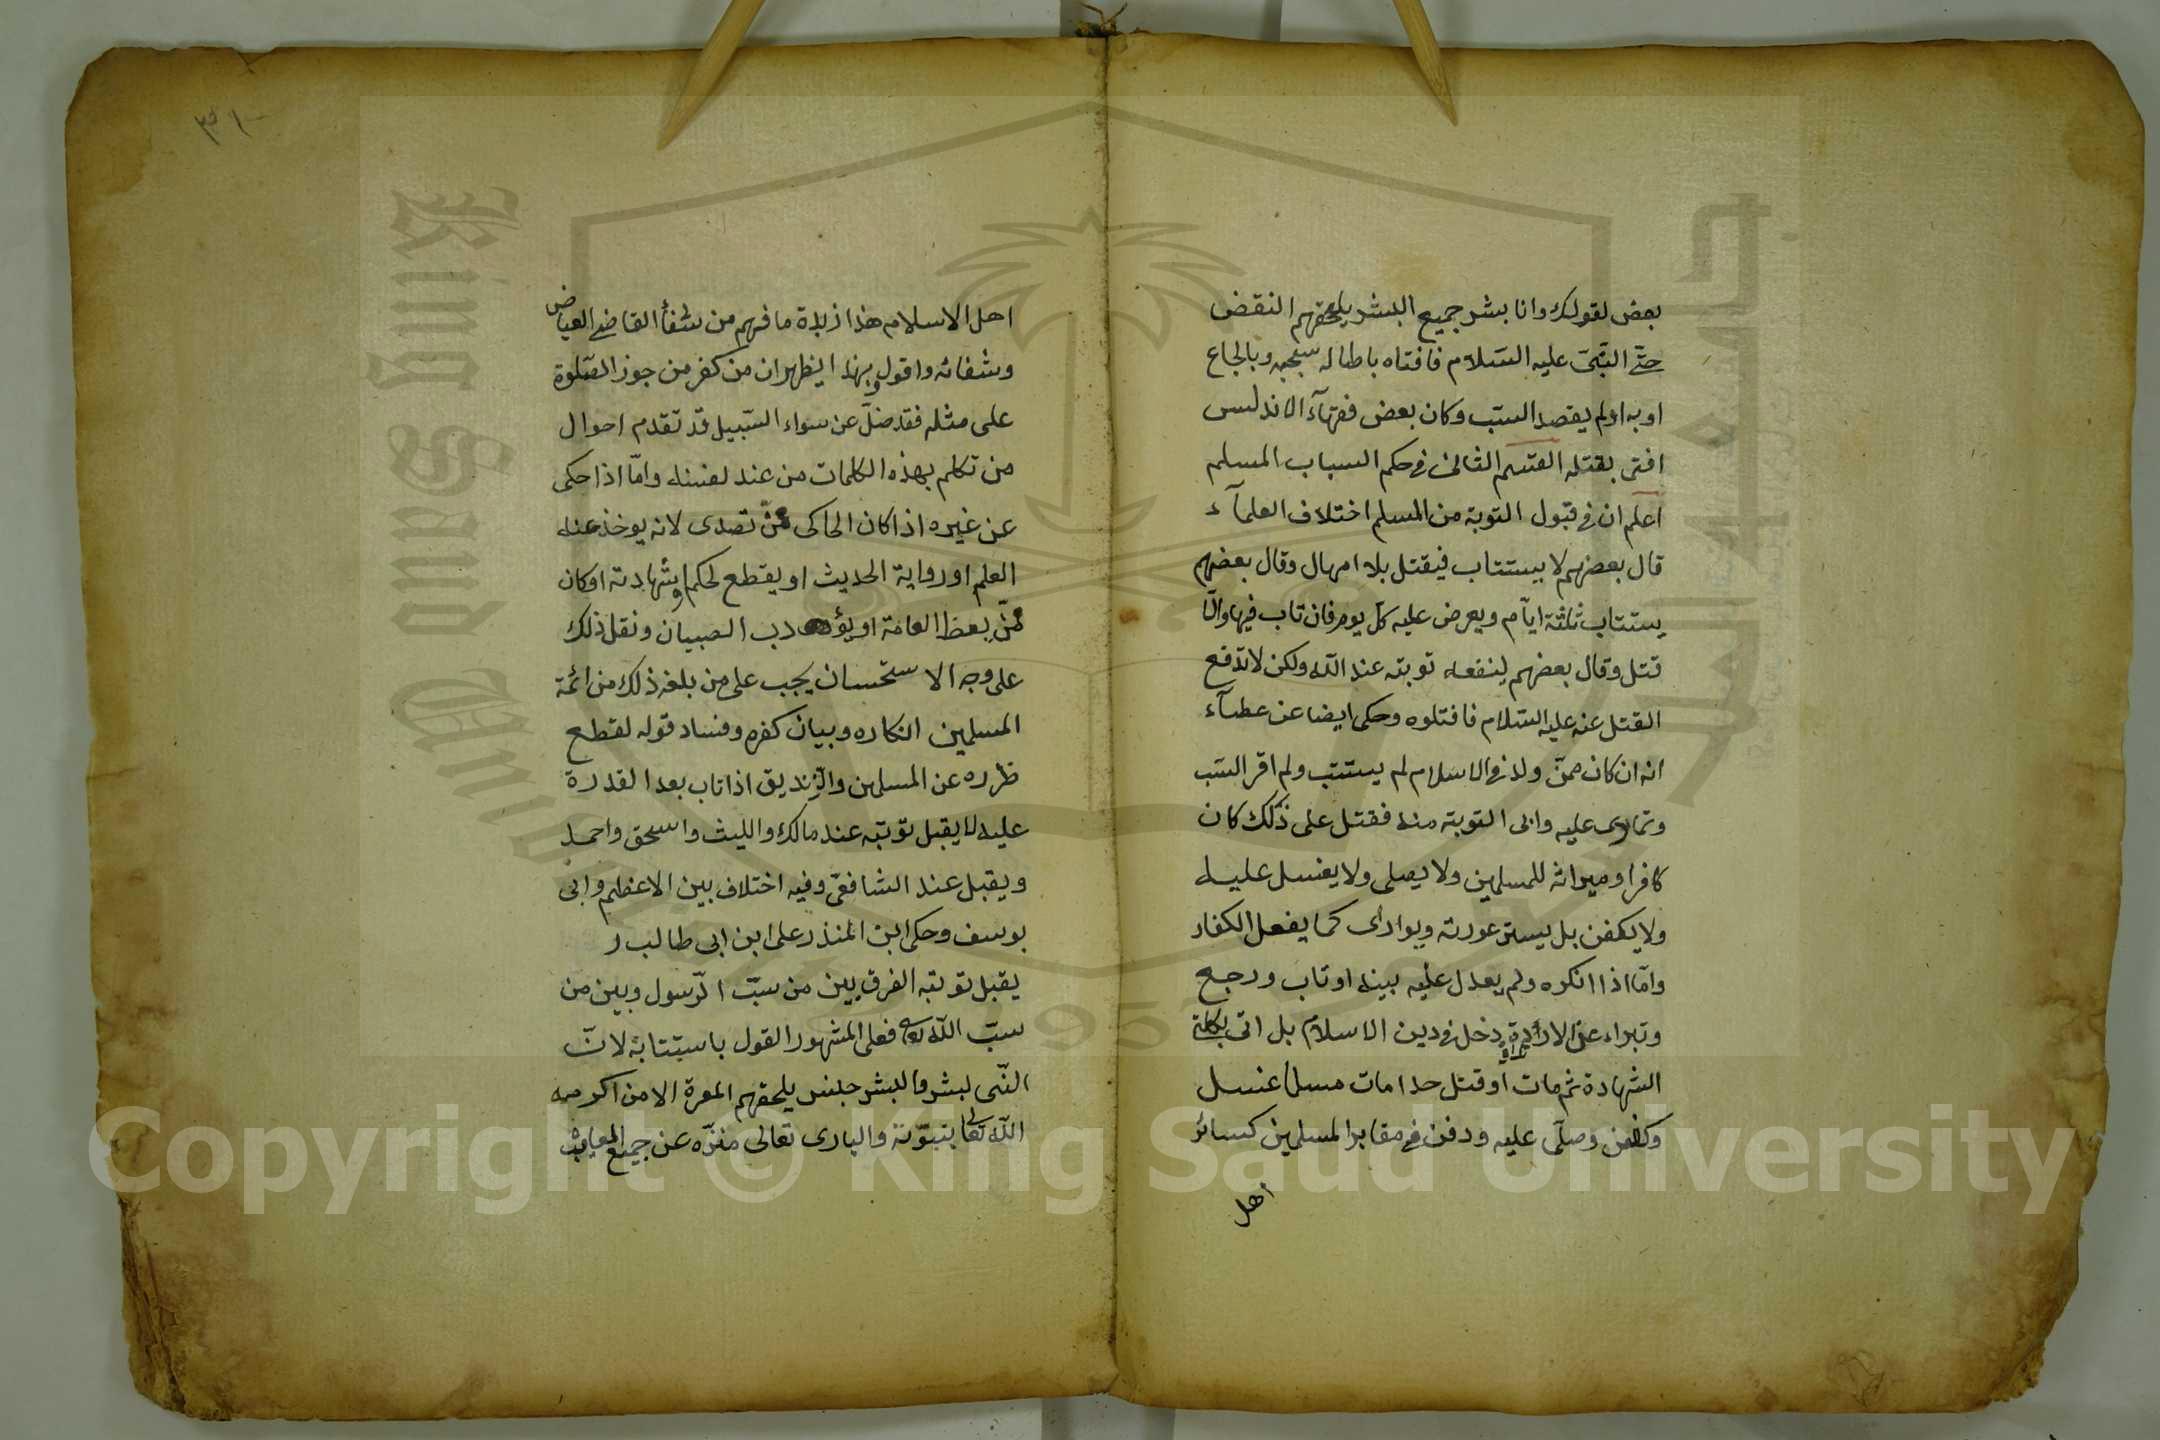 بعض لقولك وانا بشر جميع البشر يلحقهم النقض
حتّى النّبيّ عليه السّلام فافتاه باطالة سجنه وبالجاع
اوبه اولم يقصد السّب وكان بعض فقهآء الاندلس
افتى بقتله القسم الثانى فى حكم السباب المسلم
اعلم ان فى قبول التوبة من المسلم اختلاف العلمآء
قال بعضهم لا يستتاب فيقتل بلا امهال وقال بعضهم
يستتاب ثلثة ايّام ويعرض عليه كلّ يوم فان تاب فيها والّا
قتل وقال بعضهم لينفعه توبته عند اللّه ولكن لا تدفع
القتل عنه عليه السّلام فاقتلوه وحكى ايضا عن عطآء
انه ان كان ممّن ولد فى الاسلام لم يستتب ولم اقر السّب
وتمادى عليه وابى التوبة منه فقتل على ذلك كان
كافرا وميراثه للمسلمين ولا يصلى ولا يغسل عليه
ولا يكفن بل يستر عورته ويوارى كما يفعل الكفار
وامّا اذا انكره ولم يعدل عليه بينه او تاب ورجع
وتبراء عن دخل فى دين الاسلام بل اتى بكلمة
الشهادة ثم مات او قتل حدا مات مسلما غسل
وكفن وصلّى عليه ودفن فى مقابر المسلمين كسائر
اهل
٣١٠
اهل الاسلام هذا زبدة ما فهم من شفأ القاضى العياض
وشفائه واقول وبهذا يظهر ان من كفر من جوز الصّلوة
على مثله فقد ضلّ عن سواء السّبيل قد تقدم احوال
من تكلم بهذه الكلمات من عند نفسه وامّا اذا حكى
عن غيره اذا كان الحاكى ممّن تصدى لانه يوخذ عنه
العلم او رواية الحديث او يقطع لحكم وشهادته او كان
ممّن يعظ العامة او يؤدب الصبيان ونقل ذلك
على وجه الاستحسان يجب على من بلغه ذلك من ائمة
المسلمين انكاره وبيان كفره وفساد قوله لقطع
ظرره عن المسلمين والزّنديق اذا تاب بعد القدرة
عليه لا يقبل توبته عند مالك والليث واسحق واحمد
ويقبل عند الشافعىّ وفيه اختلاف بين الاعظم وابى
يوسف وحكى ابن المنذر على ابن ابى طالب ر
يقبل توبته الفرق بين من سبّ الرّسول وبين من
سبّ اللّه تعالى فعلى المشهور القول باستتابة لانّ
النّبى لبشر والبشر جنس يلحقهم المعرة الا من اكرمه
اللّه تعالى بنبوّته والبارى تعالى منزّه عن جميع المعايب
Copyright © King Saud University